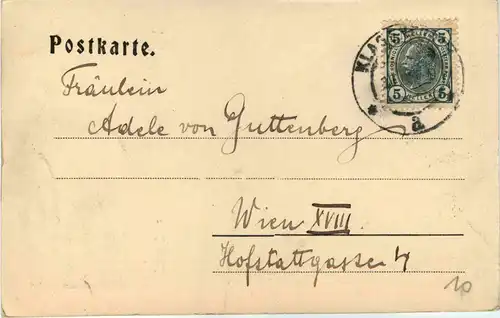 Postkarte.
5 5
5 5
a
Fräulein
Adele von Guttenberg
Wien XVIII
Hofstattgasse 4
10